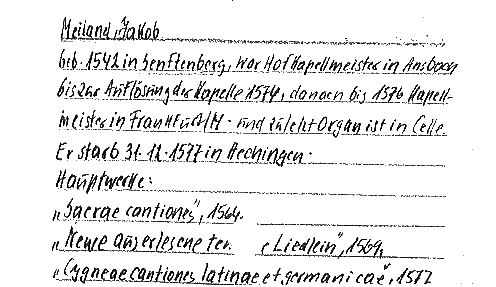 Meiland, Jakob
geb. 1542 in Senftenberg, war Hofkapellmeister in Ansbach
bis zur Auflösung der Kapelle 1574, danach bis 1576 Kapell-
meister in Frankfurt/M. und zuletzt Organist in Celle.
Er starb 31.12.1577 in Hechingen.
Hauptwerke:
„Sacrae cantiones", 1564.
„Newe auserlesene Liedlein", 1569,
„Cygneae cantiones latinae et germanicae", 1577